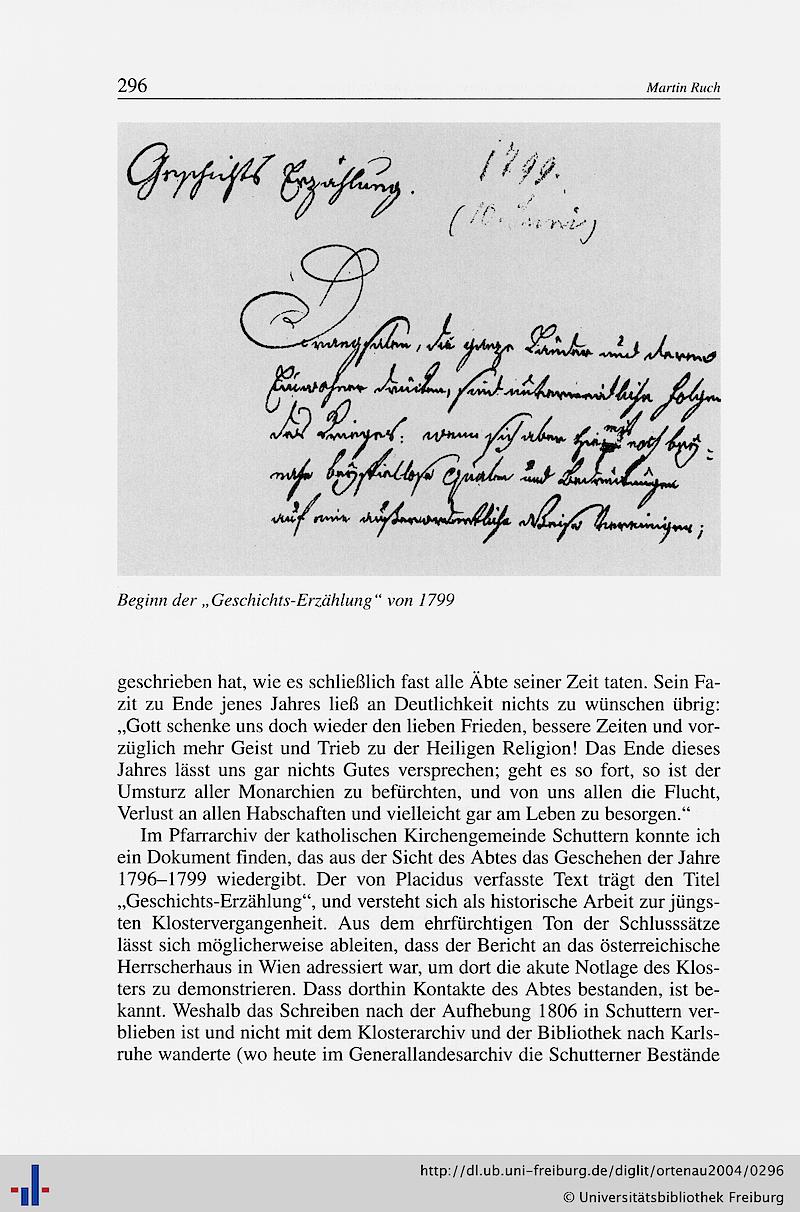 296
Martin Ruch
Geschichts Erzählung.
1799.
(10. Junius)
Drangsalen, die ganze Länder und deren
Einwohner drücken, sind unvermeidliche Folgen
des Krieges: wenn sich aber hiemit noch bey-
nahe beyspiellose Qualen und Bedrückungen
auf eine außerordentliche Weise vereinigen;
Beginn der „Geschichts-Erzählung“ von 1799
geschrieben hat, wie es schließlich fast alle Äbte seiner Zeit taten. Sein Fa-
zit zu Ende jenes Jahres ließ an Deutlichkeit nichts zu wünschen übrig:
„Gott schenke uns doch wieder den lieben Frieden, bessere Zeiten und vor-
züglich mehr Geist und Trieb zu der Heiligen Religion! Das Ende dieses
Jahres lässt uns gar nichts Gutes versprechen; geht es so fort, so ist der
Umsturz aller Monarchien zu befürchten, und von uns allen die Flucht,
Verlust an allen Habschaften und vielleicht gar am Leben zu besorgen.“
Im Pfarrarchiv der katholischen Kirchengemeinde Schuttern konnte ich
ein Dokument finden, das aus der Sicht des Abtes das Geschehen der Jahre
1796–1799 wiedergibt. Der von Placidus verfasste Text trägt den Titel
„Geschichts-Erzählung“, und versteht sich als historische Arbeit zur jüngs-
ten Klostervergangenheit. Aus dem ehrfürchtigen Ton der Schlusssätze
lässt sich möglicherweise ableiten, dass der Bericht an das österreichische
Herrscherhaus in Wien adressiert war, um dort die akute Notlage des Klos-
ters zu demonstrieren. Dass dorthin Kontakte des Abtes bestanden, ist be-
kannt. Weshalb das Schreiben nach der Aufhebung 1806 in Schuttern ver-
blieben ist und nicht mit dem Klosterarchiv und der Bibliothek nach Karls-
ruhe wanderte (wo heute im Generallandesarchiv die Schutterner Bestände
http://dl.ub.uni-freiburg.de/diglit/ortenau2004/0296
© Universitätsbibliothek Freiburg